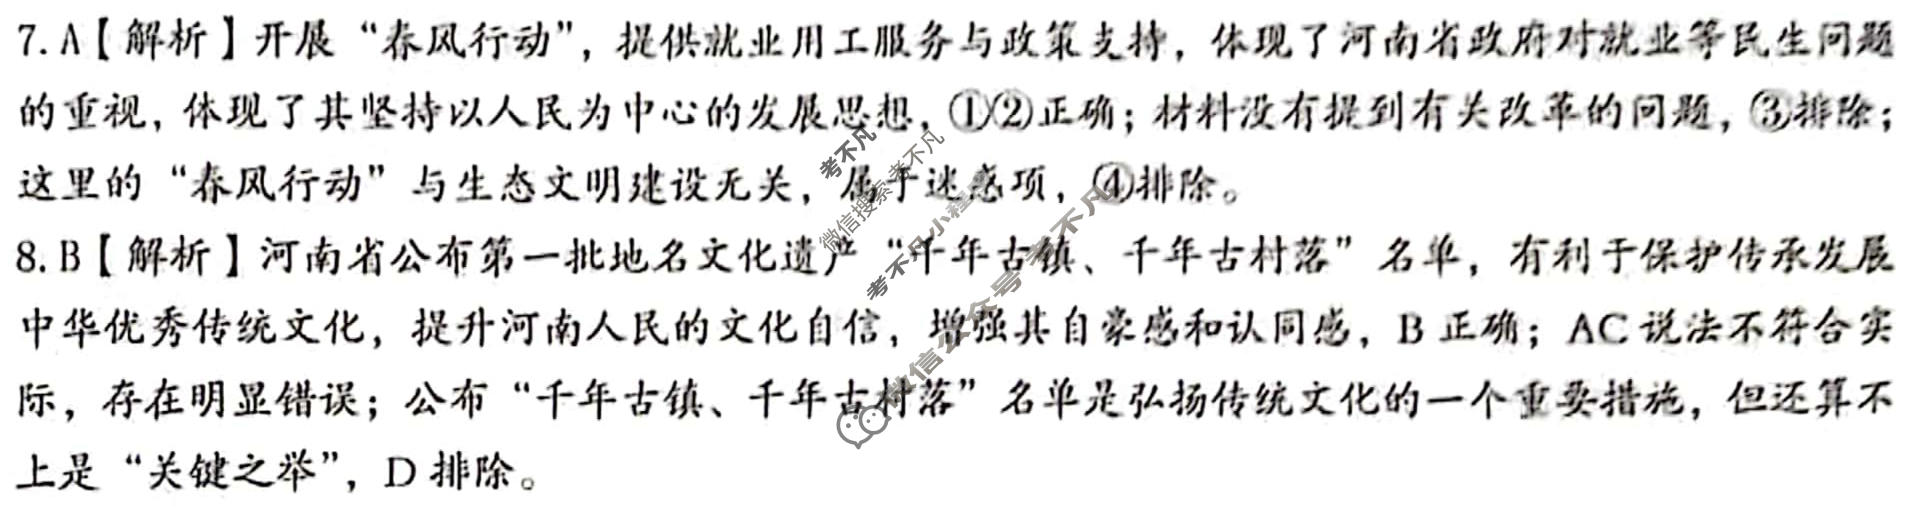 7. A【解析】开展“春风行动”，提供就业用工服务与政策支持，体现了河南省政府对就业等民生问题
的重视，体现了其坚持以人民为中心的发展思想，①②正确；材料没有提到有关改革的问题，③排除；
这里的“春风行动”与生态文明建设无关，属于迷惑项，④排除。
8. B【解析】河南省公布第一批地名文化遗产“千年古镇、千年古村落”名单，有利于保护传承发展
中华优秀传统文化，提升河南人民的文化自信，增强其自豪感和认同感，B 正确；AC 说法不符合实
际，存在明显错误；公布“千年古镇、千年古村落”名单是弘扬传统文化的一个重要措施，但还算不
上是“关键之举”，D 排除。
考不凡
微信搜索考不凡
考不凡小程
微信公众号 考不凡